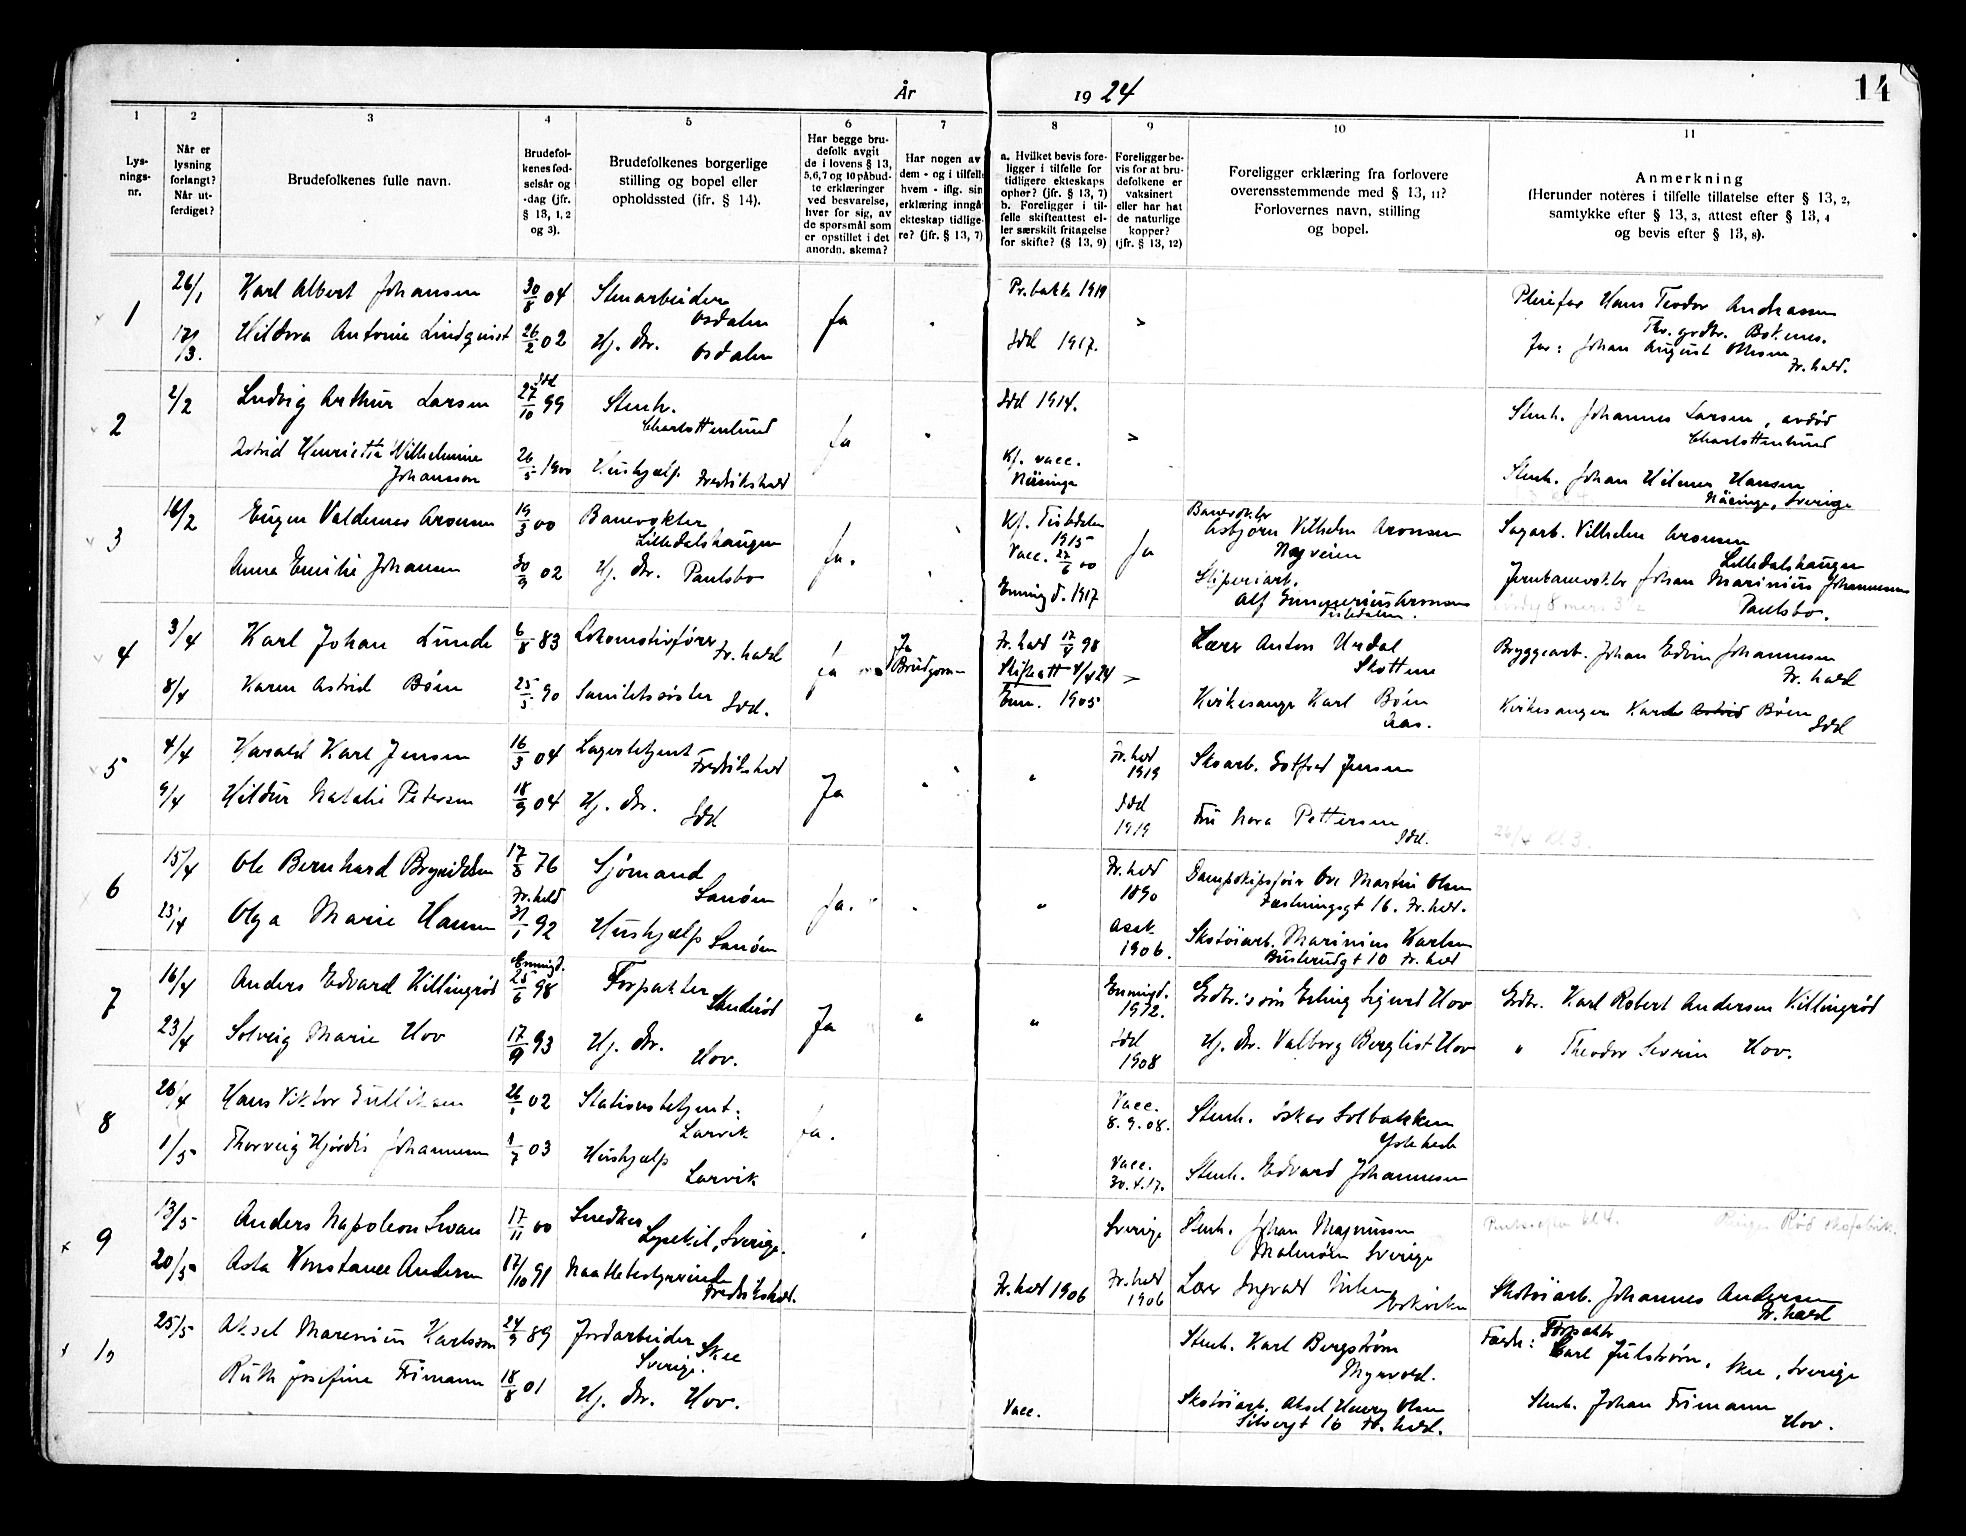 År 1924
14
1
2
3
4
5
6
7
8
9
10
11
Lys-
nings-
nr.
Når er
lysning
forlangt?
Når ut-
ferdiget?
Brudefolkenes fulle navn.
Brudefol-
kenes fød-
selsår og
-dag (jfr.
§ 13, 1, 2
og 3).
Brudefolkenes borgerlige
stilling og bopel eller
opholdssted (jfr. § 14).
Har begge bru-
defolk avgit
de i lovens § 13,
5,6,7 og 10 påbud-
te erklæringer
ved besvarelse,
hver for sig, av
de spørsmål som
er opstillet i det
anordn. skema?
Har nogen av
dem - og i tilfelle
hvem - iflg. sin
erklæring inngått
ekteskap tidlige-
re? (jfr. § 13, 7)
a. Hvilket bevis fore-
ligger i tilfelle for
tidligere ekteskaps
ophør? (jfr. § 13, 7)
b. Foreligger i til-
felle skifteattest el-
ler særskilt fritagelse
for skifte? (§ 13, 9)
Foreligger be-
vis for at bru-
defolkene er
vaksinert
eller har hat
de naturlige
kopper?
(jfr. § 13, 12)
Foreligger erklæring fra forlovere
overensstemmende med § 13, 11?
Forlovernes navn, stilling
og bopel.
Anmerkning
(Herunder notéres i tilfelle tillatelse efter § 13, 2,
samtykke efter § 13, 3, attest efter § 13, 4
og bevis efter § 13, 8).
1
26/1
Karl Albert Johansen
30/8 04
Stenarbeider
Osdalen
Ja
Pr.bakke 1919
Pleiefar Hans Teodor Andreassen
17/3.
Hildora Antonie Lindquist
26/2 02
Hj. dtr. Osdalen
Idd 1917.
far: Johan August
Fr.hald.
2
2/2
Ludvig Arthur Larsen
Idd
27/10 99
Stenh.
Charlottenlund
Ja
Idd 1914.
Stenh. Johannes Larsen, avdød
Charlottenlund
Astrid Henrietta Wilhelmine
Johansson
26/5 1900
Hushjælp Fredrikshald
Kf. vacc.
Näsinge
Stenh. Johan Hilmer Hansen
Näsinge, Sverige
3
16/2
Eugen Valdemar Aronsen
19/3 00
Banevokter
Lilledalshaugen
Ja.
Kf. Tistedalen
1915
Vacc. 27/6 00
Ja
Banevokter
Asbjørn Vilhelm Aronsen
Sagarb. Vilhelm Aronsen
Lilledalshaugen
Anna Emilie Johansen
30/9 02
Hj. dtr. Paulsbo
Enningd. 1917
Sliperiarb.
Alf Aronsen
Tistedalen.
Jernbanevokter Johan Marinius Johannessen
Paulsbo.
4
3/4
Karl Johan Lunde
6/8 83
Lokomotivfører
Fr.hald
Ja
Ja
Brudgom
Fr.hald 17/4 98
Skifteatt 4/4 24
Lærer Anton Urdal
Skottene
Bryggearb. Johan Edvin Johannesen
Fr.hald
8/4
Karen Astrid Bøen
25/5 90
Sanitetssøster
Idd.
Enn. 1905
Kirkesanger Karl Bøen
Aas.
Kirkesanger Karl Astrid Bøen
Idd
5
4/4
Harald Karl Jensen
16/3 04
Lagerbetjent
Fredrikshald
Ja
Fr.hald
1919
Skoarb. Gotfred Jensen
9/4
Hildur Natalie Petersen
18/9 04
Hj. dtr.
Idd
Idd
1919
Fru Nora Pettersen
Idd.
26/4 kl 3.
6
15/4
Ole Bernhard Brynildsen
17/3 76
Fr.hald
Sjømand
Sanøen
Ja.
Fr.hald
1890
Dampskipsfører Ove Martin Olsen
Fæstningsgt 16. Fr.hald.
23/4
Olga Marie Hansen
31/1 92
Hushjælp Sanøen
1906.
Skotøiarb. Marinius Karlsen
Busterudgt 10 Fr.hald
7
16/4
Anders Edvard Killingrød
Enningd.
25/6 98
Forpakter
Ja
Enningd.
1912.
Grdbr.'s søn Erling Sigurd Hov
Grdbr. Karl Robert Andersen Killingrød
23/4
Solveig Marie Hov
17/9 93
Hj. dtr.
Hov.
Idd
1908
Hj. dtr. Valborg Bergliot Hov
" Theodor Severin Hov.
8
26/4
Hans Viktor Gulliksen
26/1 02
Stationsbetjent.
Larvik
Ja.
Vacc.
8.9.08.
Stenh. Oskar Solbakken
1/5
Thorveig Hjørdis Johannesen
1/7 03
Hushjælp
Larvik
Vacc.
30.4.17.
Stenh. Edvard Johannesen
9
13/5
Anders Napoleon Svan
17/11 00
Snedker
Lysekil, Sverige.
Sverige
Stenh. Johan Magnusson
Malmøen Sverige
20/5
Asta Konstance Andersen
17/10 91
Fredrikshald.
Fr.hald 1906
Fr.hald
1906
Lærer Ingvald
Skotøiarb. Johannes Andersen
Fr.hald
10
25/5
Aksel Marenius Karlsson
24/9 89
Jordarbeider
Skee
Sverige.
Stenh. Karl Bergstrøm
Myrvold.
Forpakter
Carl Julstrøm, Skee, Sverige
Ruth Josefine Frimann
18/8 01
Hj. dtr. Hov.
Vacc.
Skotøiarb. Aksel Henry Olsen
16 Fr.hald.
Stenh. Johan Frimann
Hov.